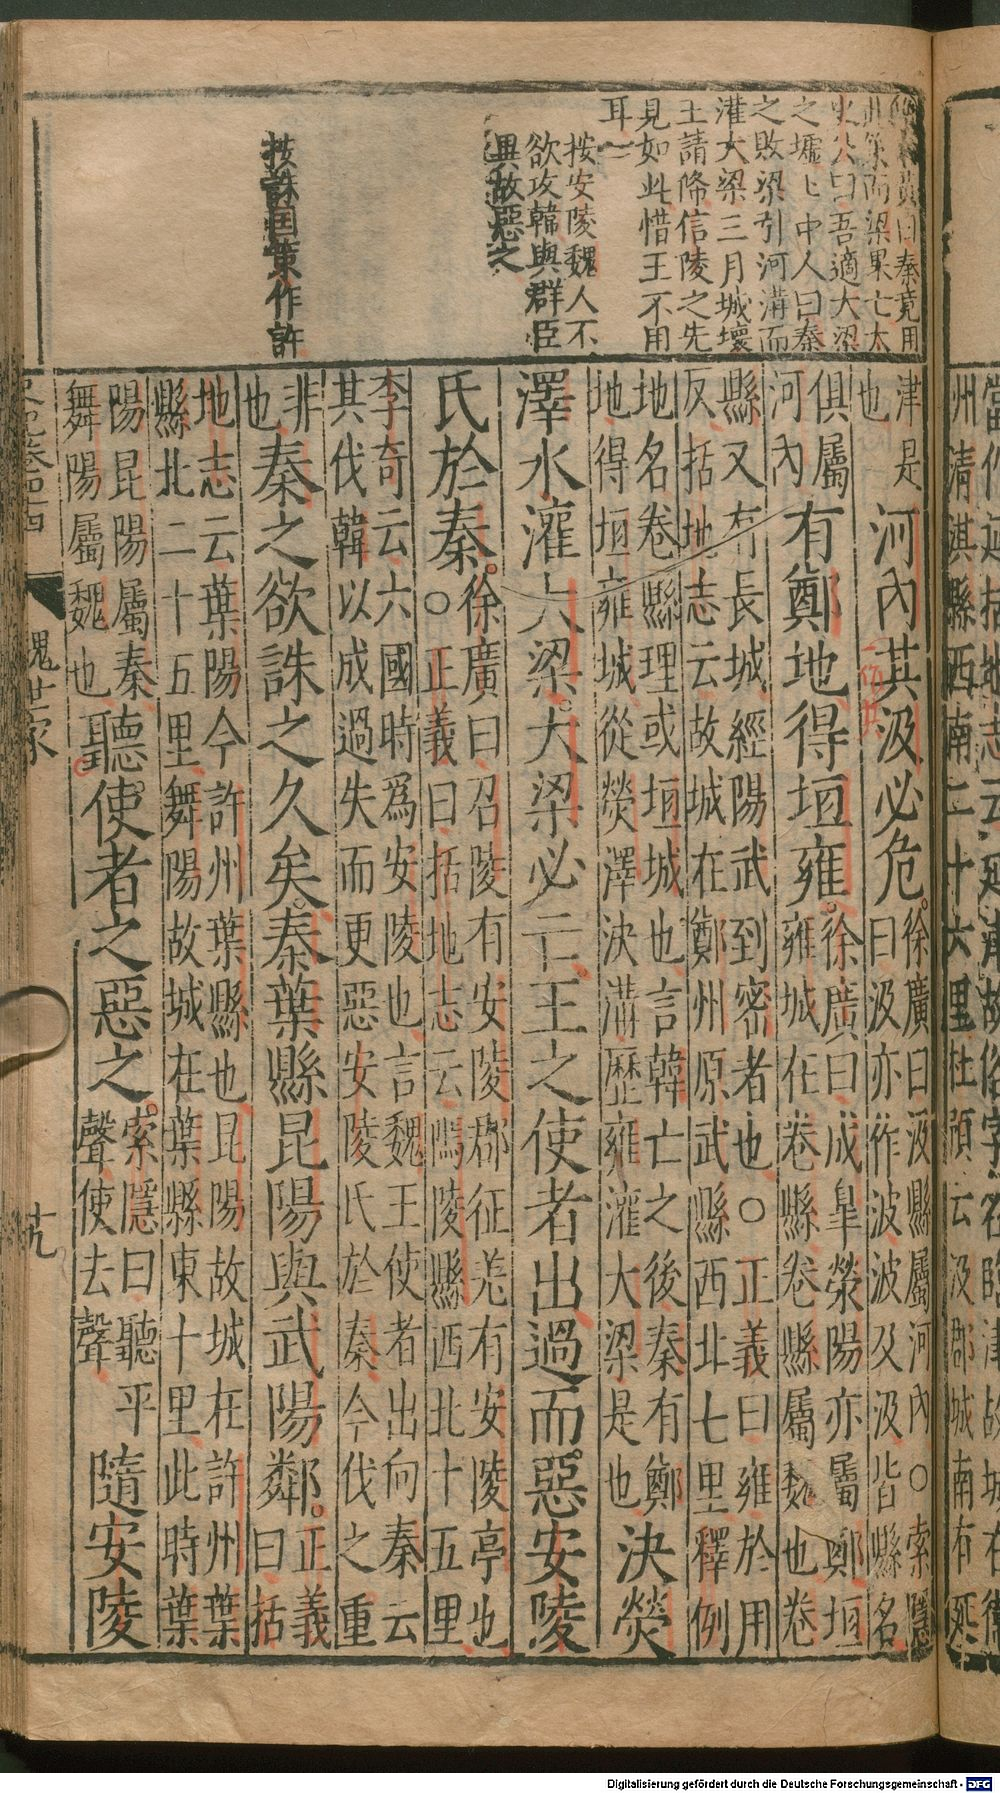 此策而梁果亡太
史公曰吾適大梁
之墟墟中人曰秦
之敗梁引河溝而
灌大梁三月城壞
王請降信陵之先
見如此惜王不用
耳
按安陵魏人不
欲攻韓與群臣
異故惡之
按誅国策作許
津是
也
河內共汲必危
徐廣曰汲縣屬河內○索隱
曰汲亦作波波及汲皆縣名
俱屬
河內
有鄭地得垣雍
徐廣曰成皐滎陽亦屬鄭垣
雍城在卷縣卷縣屬魏也卷
縣又有長城經陽武到密者也○正義曰雍於用
反括地志云故城在鄭州原武縣西北七里釋例
地名卷縣理或垣城也言韓亡之後秦有鄭
地得垣雍城從熒澤決溝歷雍灌大梁是也
決熒
澤水灌大梁大梁必亡王之使者出過而惡安陵
氏於秦
徐廣曰召陵有安陵鄉征羌有安陵亭也
○正義曰括地志云鄢陵縣西北十五里
李奇云六國時爲安陵也言魏王使者出向秦云
其伐韓以成過失而更惡安陵氏於秦今伐之重
非
也
秦之欲誅之久矣秦葉縣昆陽與武陽鄰
正義
曰括
地志云葉陽今許州葉縣也昆陽故城在許州葉
縣北二十五里舞陽故城在葉縣東十里此時葉
陽昆陽屬秦
舞陽屬魏也
聽使者之惡之
索隱曰聽平
聲使去聲
隨安陵
魏世家
州清淇縣西南二十六里杜預云汲郡城南有延
Digitalisierung gefördert durch die Deutsche Forschungsgemeinschaft - DFG